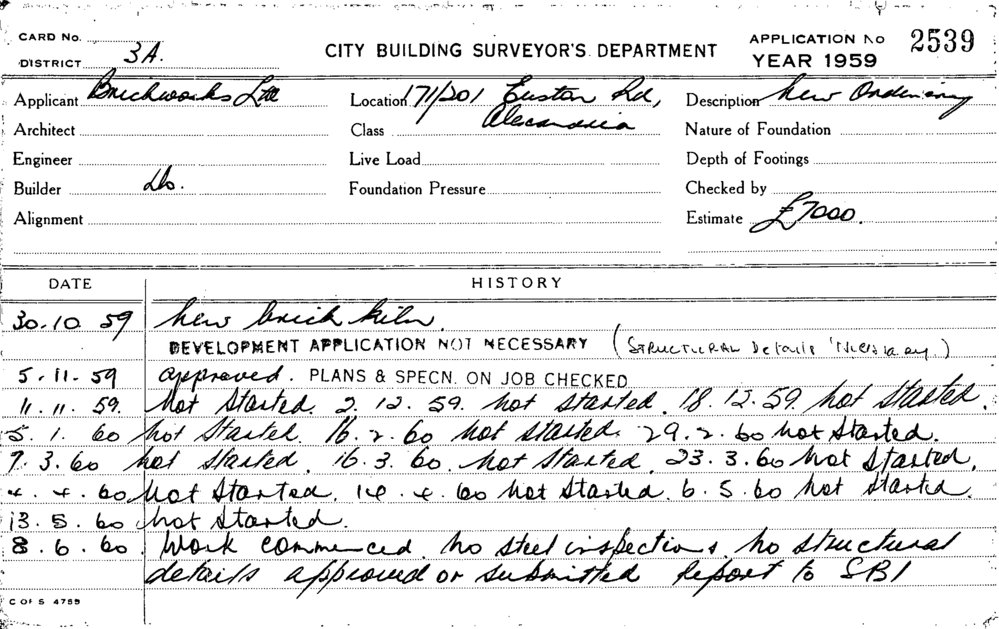 CARD No.
DISTRICT 3A.
CITY BUILDING SURVEYOR'S DEPARTMENT
APPLICATION No 2539
YEAR 1959
Applicant Brickworks Ltd Location 171/201 Euston Rd, Description New
Architect Class Alexandria Nature of Foundation
Engineer Live Load Depth of Footings
Builder Do. Foundation Pressure Checked by
Alignment Estimate £7000.
DATE HISTORY
30.10.59 New brick kiln.
DEVELOPMENT APPLICATION NOT NECESSARY (STRUCTURAL Details Necessary)
5.11.59 approved. PLANS & SPECN. ON JOB CHECKED
11.11.59. Not started. 2.12.59. not started. 18.12.59. not started.
5.1.60 not started. 16.2.60 not started. 29.2.60 not started.
7.3.60 not started. 16.3.60. not started. 23.3.60 not started.
4.4.60 not started. 14.4.60 not started. 6.5.60 not started.
13.5.60 not started.
8.6.60. Work commenced. No steel inspections, no structural
details approved or submitted Report to SBI
C OF S 4759